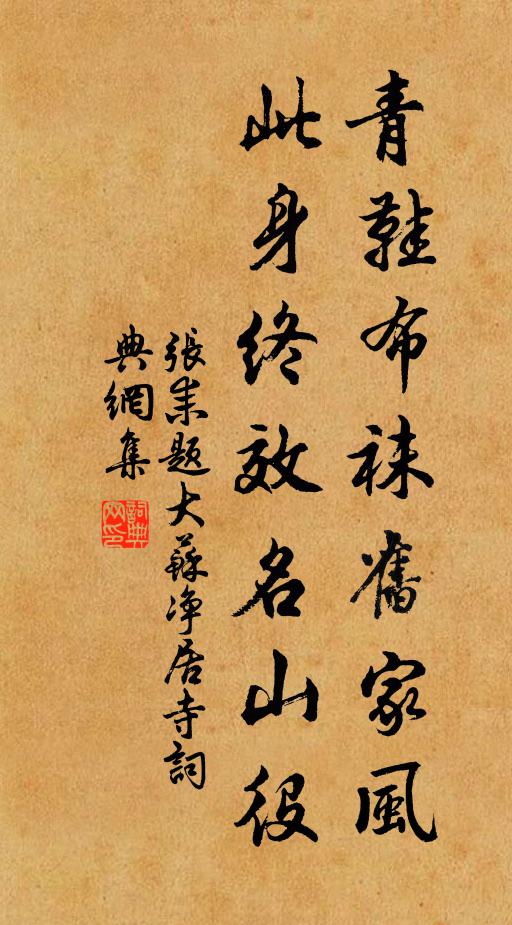 青鞋布袜舊家風
此身終效名山役
張耒題大蘇净居寺詞
典網集
詞典
网印